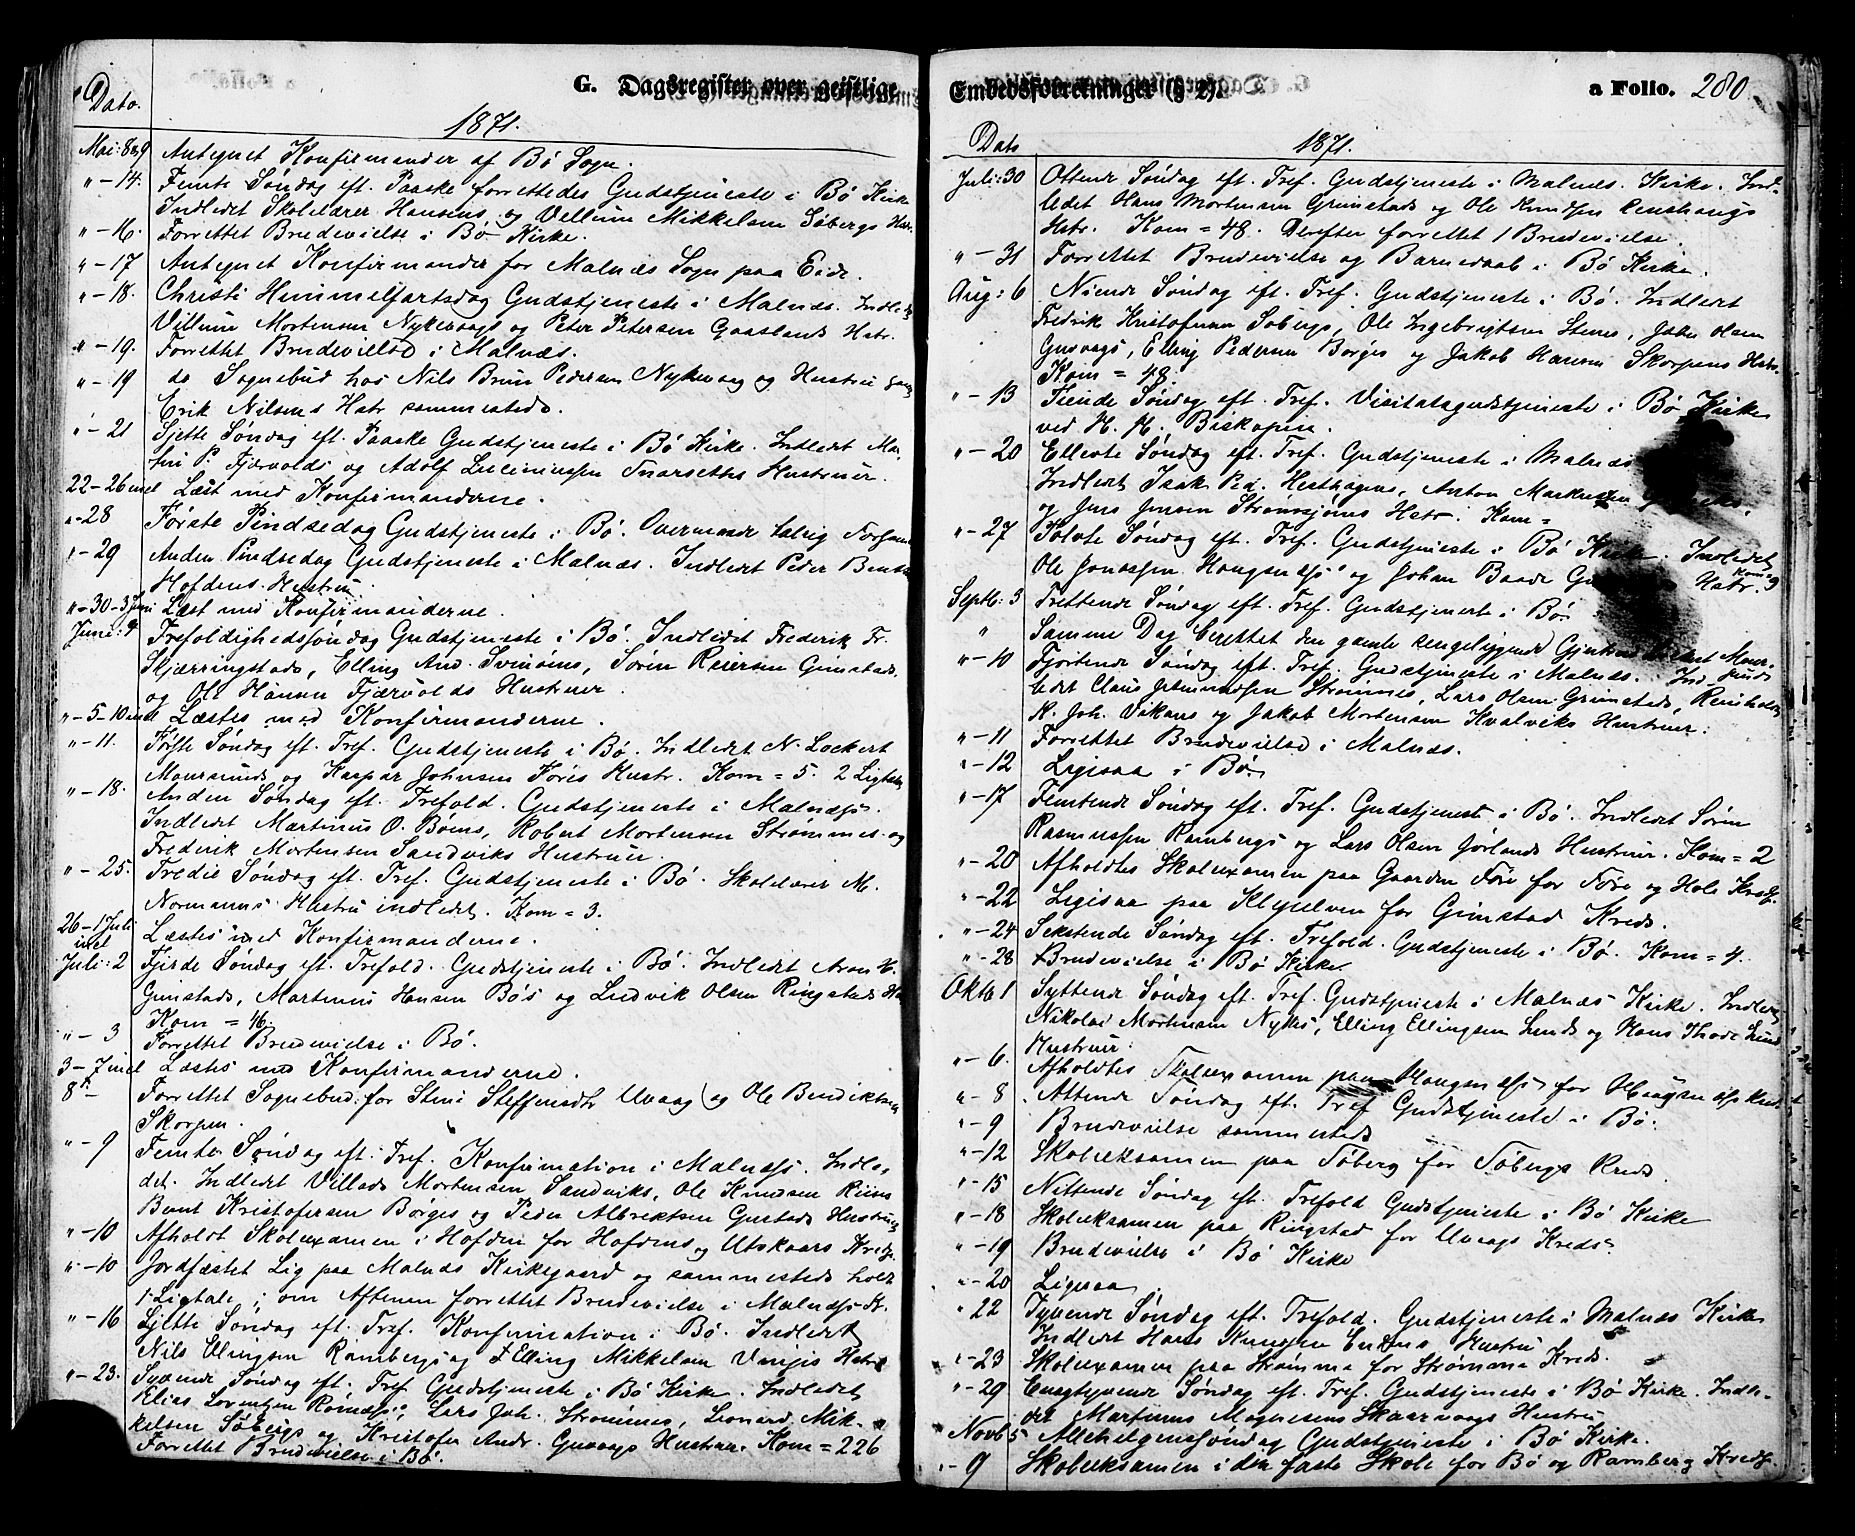 G. Dagsregister over geistlige
Dato.
1871.
Mai: 8 & 9 Antegnet Konfirmander af Bø Sogn.
" – 14. Femte Søndag eft. Paaske forrettedes Gudstjeneste i Bø Kirke
Indledet Skolelærer Hansens og Villum Mikkelsen Søbergs Hstr.
" – 16. Forrettet Brudevielse i Bø Kirke.
" – 17 Antegnet Konfirmander for Malnes Sogn paa Eide.
" – 18. Christi Himmelfartsdag Gudstjeneste i Malnæs. Indledt
Villum Mortensen Nykevaags og Peter Petersen Gaaslands Hstr.
" – 19. Forrettet Brudevielse i Malnæs.
" – 19 do Sognebud hos Nils Brun Pedersen Nykevaag og Hustru
Erik Nilsens Hstr sammesteds.
" – 21 Sjette Søndag eft. Paaske Gudstjeneste i Bø Kirke. Indledet Mar-
P. Fjærvolds og Adolf Snarseths Hustruer.
22 – 26 incl Læst med Konfirmanderne.
" – 28 Første Pindsedag Gudstjeneste i Bø. Overmaade talrig
" – 29 Anden Pindsedag Gudstjeneste i Malnæs. Indledt Peder
Hofdens Hustru.
" – 30 – 3 Juni Læst med Konfirmanderne.
Juni: 4 Trefoldighedssøndag Gudstjeneste i Bø. Indledet Frederik Fr.
Skjærringstads, Elling And. Svinøens, Søren Reiersen Grimstads
og Ole Hansen Fjærvolds Hustruer.
" – 5 – 10 incl Læstes med Konfirmanderne.
" – 11. Første Søndag eft. Tref. Gudstjeneste i Bø. Indledet N. Lockert
Moursunds og Kaspar Johnsen Føres Hustr. Kom = 5. 2 Ligtaler
" – 18. Anden Søndag eft. Trefold. Gudstjeneste i Malnæss.
Indledet Martinus O. Bøens, Robert Mortensen Strømmes og
Frederik Mortensen Sandviks Hustruer.
" – 25. Tredie Søndag eft. Tref. Gudstjeneste i Bø. Skolelærer M.
Normanns Hustru indledet. Kom = 3.
26 – 1 Juli incl Læstes med Konfirmanderne.
Juli: 2 Fjerde Søndag eft. Trefold. Gudstjeneste i Bø. Indledet Aron H.
Grimstads, Martinus Hansen Bø's og Ludvik Olsen Ringstads
Kom = 46.
" – 3 Forrettet Brudevielse i Bø.
3 – 7 incl Læstes med Konfirmanderne.
8de – Forrettet Sognebud for Stine Steffensdtr Uvaag og Ole Bendiktsen
Skorpen.
" – 9 Femte Søndag eft. Tref. Konfirmation i Malnæss. Indle-
det. Indledet Villads Mortensen Sandviks, Ole Knudsen
Bent Kristofersen Børges og Peder Albrektsen Hustruer
" – 10 Afholdt Skolexamen i Hofden for Hofdens og Utskaars Kreds.
" – 10 Jordfæstet Lig paa Malnes Kirkegaard og sammesteds holdt
1 Ligtale; om Aftenen forrettet Brudevielse i Malnæss K.
" – 16 Sjette Søndag eft. Tref. Konfirmation i Bø. Indledet
Nils Ellingsen Rambergs og Elling Mikkelsen Hstr
" – 23. Syvende Søndag eft. Tref. Gudstjeneste i Bø Kirke. Indledet
Elias Lars Joh. Strømmes, Leonard Mik-
kelsen Søbergs og Kristofer Andr. Guvaags Hustruer. Kom = 226
Forrettet Brudevielse i Bø.
Embedsforretninger (§ 2).
a Folio. 280
Dato
1871.
Juli: 30 Ottende Søndag eft. Tref. Gudstjeneste i Malnæs. Kirke. Ind-
ledet Hans Mortensen Grimstads og Ole Knudsen
Hstr. Kom = 48. Derefter forrettet 1 Brudevielse.
" – 31 Forrettet Brudevielse og Barnedaab i Bø Kirke.
Aug: 6 Niende Søndag eft. Tref. Gudstjeneste i Bø. Indledet
Fredrik Kristofersen Søbergs, Ole Ingebrigtsen Steens, Olsen
Guvaags, Elling Pedersen Børges og Jakob Hansen Skorpens Hstr
Kom = 48.
" – 13 Tiende Søndag eft. Tref. Visitatsgudstjeneste i Bø Kirke
ved H. H. Biskopen.
" – 20 Ellevte Søndag eft. Tref. Gudstjeneste i Malnæs
Indledet Isak Ped. Hesthagens, Anton Markussen
og Jens Jensen Strømsjøens Hstr. Kom =
" – 27 Tolvte Søndag eft. Tref. Gudstjeneste i Bø Kirke. Indledet
Ole Jonassen Haugsnæss' og Johan Baade Hstr. Kom = 9
Septb: 3 Trettende Søndag eft. Tref. Gudstjeneste i Bø.
" Samme Dag berettet den gamle sengeliggende
" – 10 Fjortende Søndag eft. Tref. Gudstjeneste i Malnæs. Ind-
ledet Claus Strømmes, Lars Olsen Grimstads, Reinholdt
K. Joh. Vikans og Jakob Mortensen Kvalviks Hustruer.
" – 11 Forrettet Brudevielse i Malnæs.
" – 12 Ligesaa i Bø
" – 17 Femtende Søndag eft. Tref. Gudstjeneste i Bø. Indledet Søren
Rasmussen Rambergs og Lars Olsen Jørlands Hustruer. Kom = 2
" – 20 Afholdtes Skolexamen paa Gaarden Føre for Føre og Hole Kreds.
" – 22 Ligesaa paa Klepelven for Grimstad Kreds.
" – 24 Sekstende Søndag eft. Trefold. Gudstjeneste i Bø. Kom = 4.
" – 28 Brudevielse i Bø Kirke.
Oktb 1 Syttende Søndag eft. Tref. Gudstjeneste i Malnæs Kirke. Indledet
Nikolai Mortensen Nykes, Elling Ellingsen Lunds og Hans Thode Lund
Hustruer.
" – 6. Afholdtes Skolexamen paa Haugsnæss for Haugsnæss Kreds.
" – 8 Attende Søndag eft. Tref Gudstjeneste i Bø.
" – 9 Brudevielse sammesteds
" – 12 Skoleeksamen paa Søberg for Søbergs Kreds.
" – 15 Nittende Søndag eft. Trefold Gudstjeneste i Bø Kirke
" – 18 Skoleeksamen paa Ringstad for Uvaags Kreds.
" – 19 Brudevielse i Bø Kirke
" – 20 Ligesaa.
" 22 Tyvende Søndag eft. Trefold. Gudstjeneste i Malnæs Kirke
Indledet Hans Knudsen Hustru
" – 23 Skolexamen paa Strømme for Strømme Kreds.
" – 29 Enogtyvende Søndag eft. Tref. Gudstjeneste i Bø Kirke. Indle-
det Martinus Magnesens Skaarvaags Hustru
Novb 5 Allehelgenssøndag Gudstjeneste i Bø Kirke.
" – 9 Skoleeksamen i den faste Skole for Bø og Ramberg Kreds.